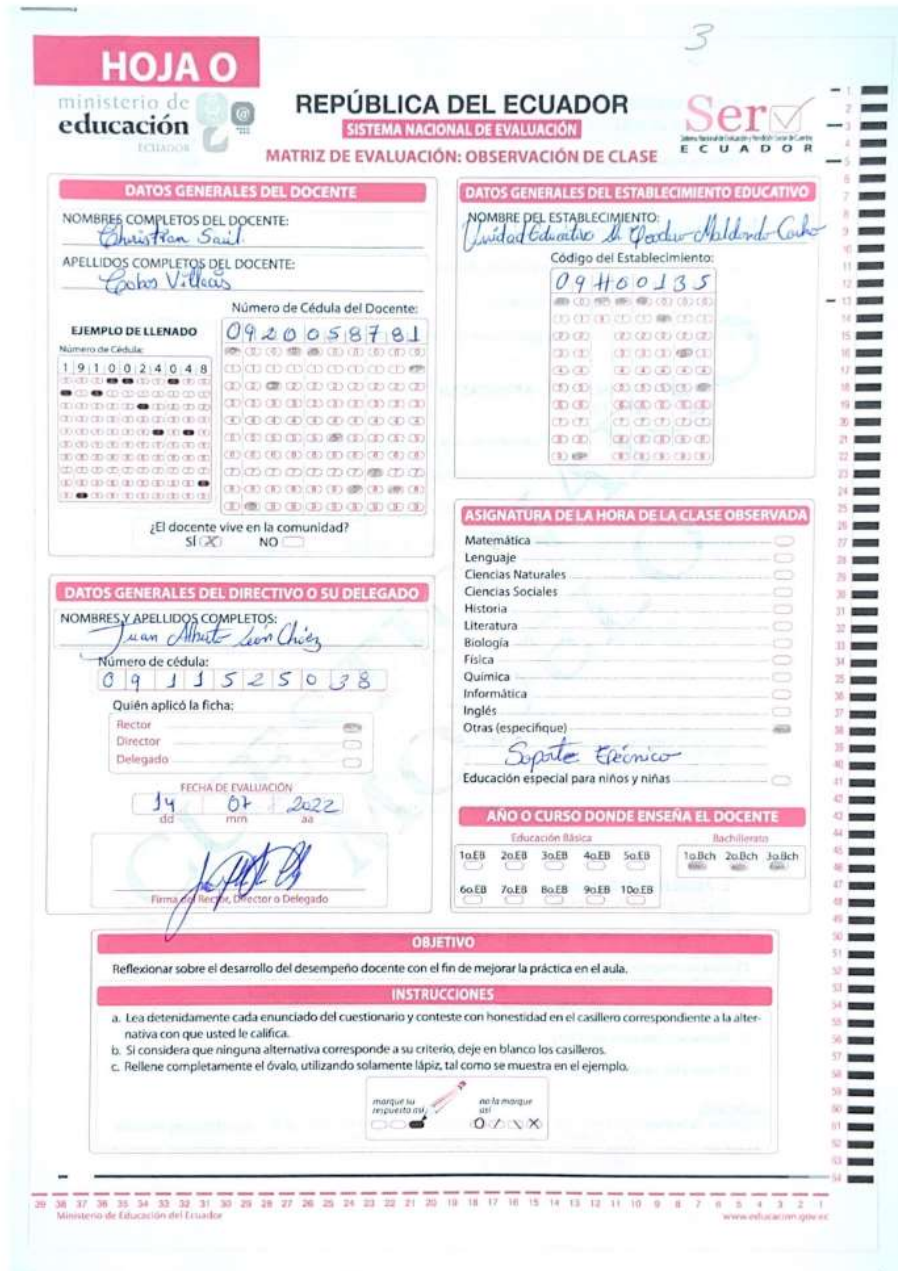 3
HOJA O
ministerio de
educación
ECUADOR
REPÚBLICA DEL ECUADOR
SISTEMA NACIONAL DE EVALUACIÓN
MATRIZ DE EVALUACIÓN: OBSERVACIÓN DE CLASE
Ser
ECUADOR
DATOS GENERALES DEL DOCENTE
NOMBRES COMPLETOS DEL DOCENTE:
Christian Saúl
APELLIDOS COMPLETOS DEL DOCENTE:
Cobos Villacis
Número de Cédula del Docente:
0920058781
EJEMPLO DE LLENADO
Número de Cédula:
1910024048
¿El docente vive en la comunidad?
SÍ X NO
DATOS GENERALES DEL DIRECTIVO O SU DELEGADO
NOMBRES Y APELLIDOS COMPLETOS:
Juan Alberto León Cháez
Número de cédula:
0911525038
Quién aplicó la ficha:
Rector
Director
Delegado
FECHA DE EVALUACIÓN
14 07 2022
dd mm aa
Firma del Rector, Director o Delegado
DATOS GENERALES DEL ESTABLECIMIENTO EDUCATIVO
NOMBRE DEL ESTABLECIMIENTO:
Unidad Educativa Dr Teodoro Maldonado Carbo
Código del Establecimiento:
09H00135
ASIGNATURA DE LA HORA DE LA CLASE OBSERVADA
Matemática
Lenguaje
Ciencias Naturales
Ciencias Sociales
Historia
Literatura
Biología
Física
Química
Informática
Inglés
Otras (especifique)
Soporte Técnico
Educación especial para niños y niñas
AÑO O CURSO DONDE ENSEÑA EL DOCENTE
Educación Básica Bachillerato
1o.EB 2o.EB 3o.EB 4o.EB 5o.EB 1o.Bch 2o.Bch 3o.Bch
6o.EB 7o.EB 8o.EB 9o.EB 10o.EB
OBJETIVO
Reflexionar sobre el desarrollo del desempeño docente con el fin de mejorar la práctica en el aula.
INSTRUCCIONES
a. Lea detenidamente cada enunciado del cuestionario y conteste con honestidad en el casillero correspondiente a la alter-
nativa con que usted le califica.
b. Si considera que ninguna alternativa corresponde a su criterio, deje en blanco los casilleros.
c. Rellene completamente el óvalo, utilizando solamente lápiz, tal como se muestra en el ejemplo.
marque su no la marque
respuesta así así
39 38 37 36 35 34 33 32 31 30 29 28 27 26 25 24 23 22 21 20 19 18 17 16 15 14 13 12 11 10 9 8 7 6 5 4 3 2 1
Ministerio de Educación del Ecuador www.educacion.gov.ec